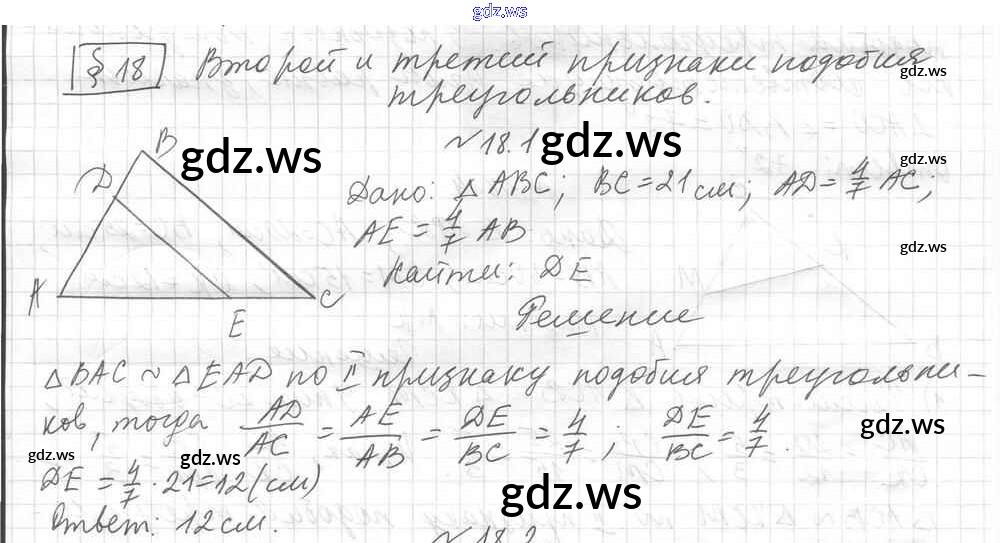 gdz.ws
§ 18 Второй и третий признаки подобия
gdz.ws
треугольников.
№18.1
gdz.ws
gdz.ws
gdz.ws
B
D
A
E
C
Дано: △ABC; BC=21 см; AD=4/7 AC;
AE = 4/7 AB
gdz.ws
Найти: DE
Решение
△BAC ~ △EAD по II признаку подобия треугольни-
ков, тогда AD/AC = AE/AB = DE/BC = 4/7; DE/BC = 4/7.
gdz.ws
gdz.ws
gdz.ws
DE = 4/7 · 21 = 12 (см)
gdz.ws
Ответ: 12 см.
№18.2